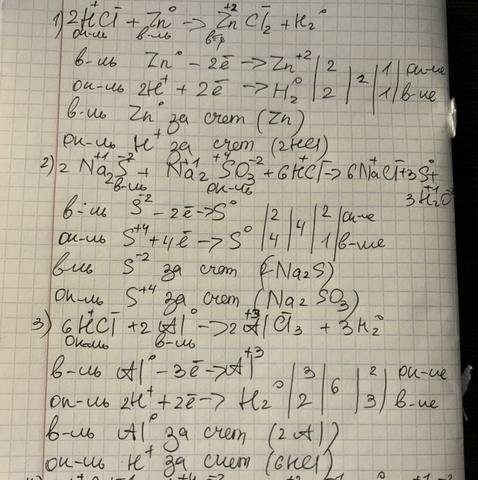 1) 2H⁺Cl⁻ + Zn⁰ → Zn⁺²Cl₂⁻ + H₂⁰
ок-ль в-ль в-ль Zn⁰ - 2ē → Zn⁺² | 2 | 2 | 1 | ок-ие
ок-ль 2H⁺ + 2ē → H₂⁰ | 2 | | 1 | в-ие
в-ль Zn⁰ за счет (Zn)
ок-ль H⁺ за счет (2HCl)
2) 2Na₂⁺¹S⁻² + Na₂⁺¹S⁺⁴O₃⁻² + 6H⁺Cl⁻ → 6Na⁺Cl⁻ + 3S⁰ +
3H₂⁺¹O⁻²
в-ль ок-ль
в-ль S⁻² - 2ē → S⁰ | 2 | 4 | 2 | ок-ие
ок-ль S⁺⁴ + 4ē → S⁰ | 4 | | 1 | в-ие
в-ль S⁻² за счет (2Na₂S)
ок-ль S⁺⁴ за счет (Na₂SO₃)
3) 6H⁺Cl⁻ + 2Al⁰ → 2Al⁺³Cl₃⁻ + 3H₂⁰
ок-ль в-ль
в-ль Al⁰ - 3ē → Al⁺³ | 3 | 6 | 2 | ок-ие
ок-ль 2H⁺ + 2ē → H₂⁰ | 2 | | 3 | в-ие
в-ль Al⁰ за счет (2Al)
ок-ль H⁺ за счет (6HCl)